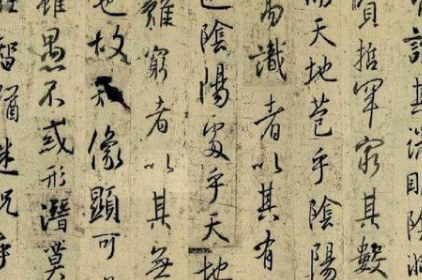 識其端明陰洞
賢哲罕窮其數
而天地苞乎陰陽
易識者以其有
也陰陽處乎天地
難窮者以其無
也故知像顯可
雖愚不惑形潛莫
在智猶迷況乎